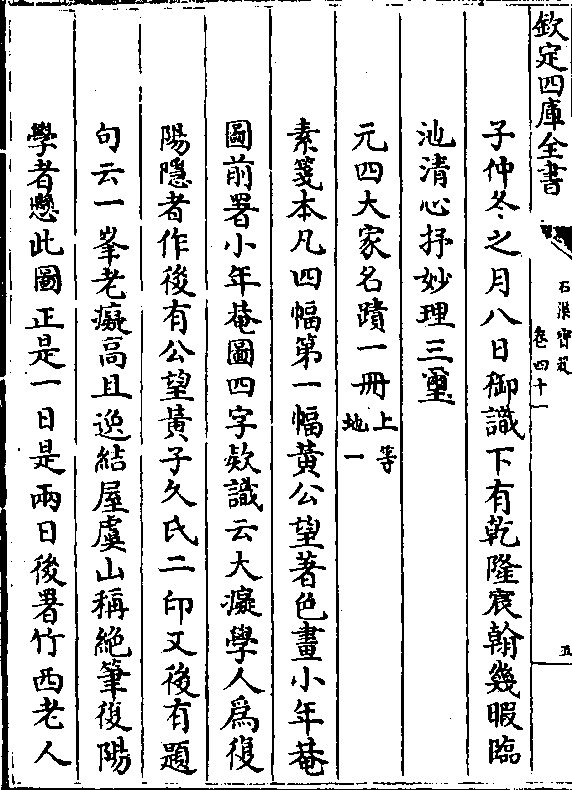 欽定四庫全書
石渠寶笈
卷四十一
五
子仲冬之月八日御識下有乾隆宸翰幾暇臨
池清心抒妙理三璽
元四大家名蹟一冊上等
地一
素箋本凡四幅第一幅黃公望著色畫小年菴
圖前署小年菴圖四字欵識云大癡學人為復
陽隱者作後有公望黃子久氏二印又後有題
句云一峯老癡高且逸結屋虞山稱絶筆復陽
學者懸此圖正是一日是兩日後署竹西老人